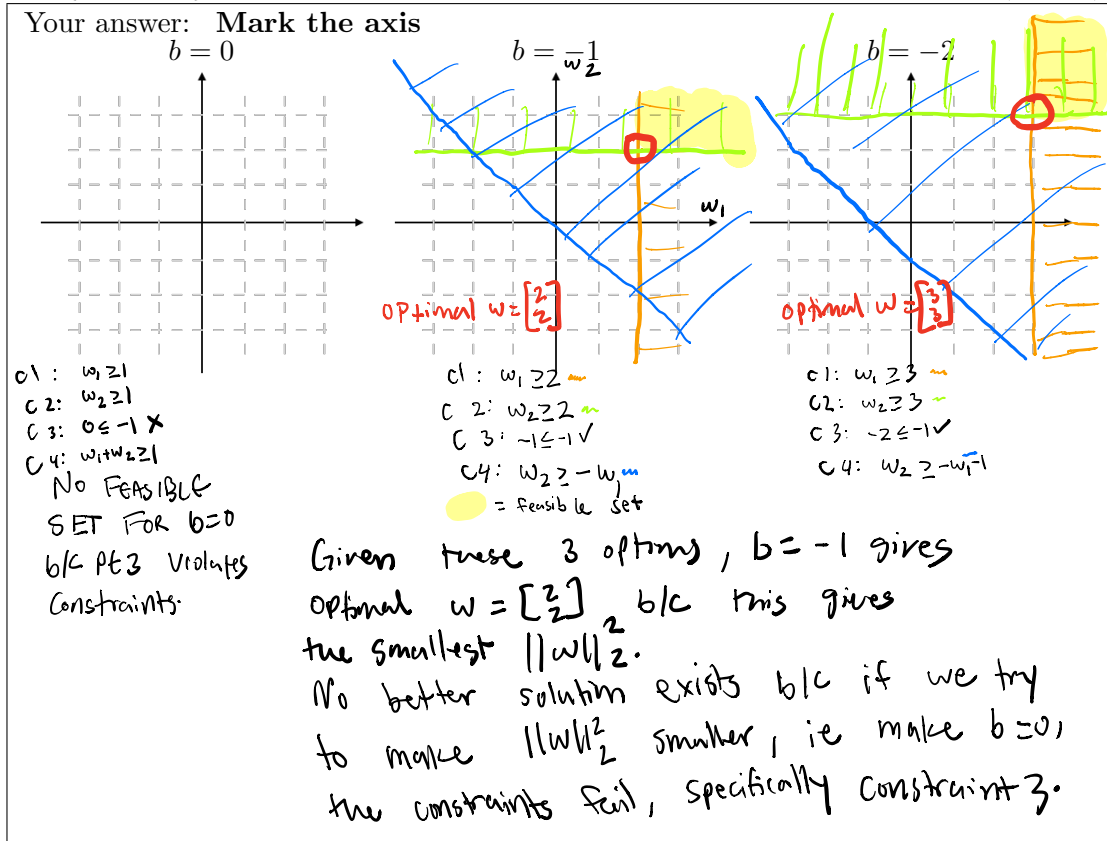 Your answer: Mark the axis
b = 0
b = −1
b = −2
w2
w1
optimal w = [2 2]
optimal w = [3 3]
C1: w₁ ≥ 1
C2: w₂ ≥ 1
C3: 0 ≤ -1 ✗
C4: w₁+w₂ ≥ 1
NO FEASIBLE
SET FOR b=0
b/c pt 3 violates
constraints.
C1: w₁ ≥ 2
C2: w₂ ≥ 2
C3: -1 ≤ -1 ✓
C4: w₂ ≥ -w₁
= feasible set
C1: w₁ ≥ 3
C2: w₂ ≥ 3
C3: -2 ≤ -1 ✓
C4: w₂ ≥ -w₁-1
Given these 3 options, b = -1 gives
optimal w = [2 2] b/c this gives
the smallest ||w||₂².
No better solution exists b/c if we try
to make ||w||₂² smaller, ie make b=0,
the constraints fail, specifically constraint 3.